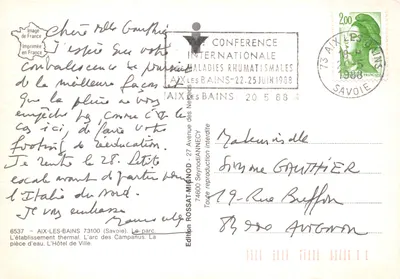 Image
de France
Imprimée
en France
Chère Melle Gauthier
J'espère que votre
convalescence se poursuit
de la meilleure façon et
que la pluie ne vous
empêche pas comme c'est le
cas ici, de faire votre
footing de rééducation.
Je rentre le 28. Petite
escale avant de partir pour
l'Italie du Nord.
Je vous embrasse
6537 - AIX-LES-BAINS 73100 (Savoie). Le parc.
L'établissement thermal. L'arc des Campanus. La
pièce d'eau. L'Hôtel de Ville.
Edition ROSSAT-MIGNOD - 27 Avenue des
74600 Seynod/ANNECY
Toute reproduction interdite
CONFERENCE
INTERNATIONALE
MALADIES RHUMATISMALES
AIX LES BAINS - 22.25 JUIN 1988
AIX LES BAINS 20.5.88
73 AIX-LES-BAINS
1988
SAVOIE
2,00
Mademoiselle
Simone GAUTHIER
19 Rue Buffon
84000 AVIGNON